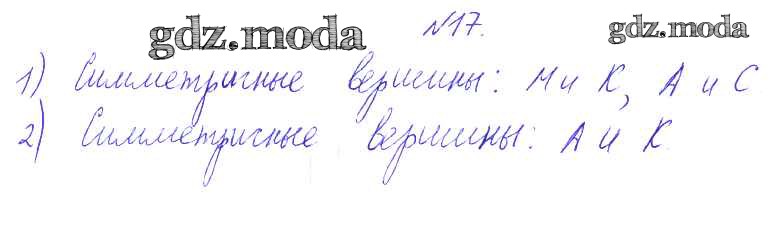 №17.
gdz.moda gdz.moda
1) Симметричные вершины: М и К, А и С
2) Симметричные вершины: А и К.